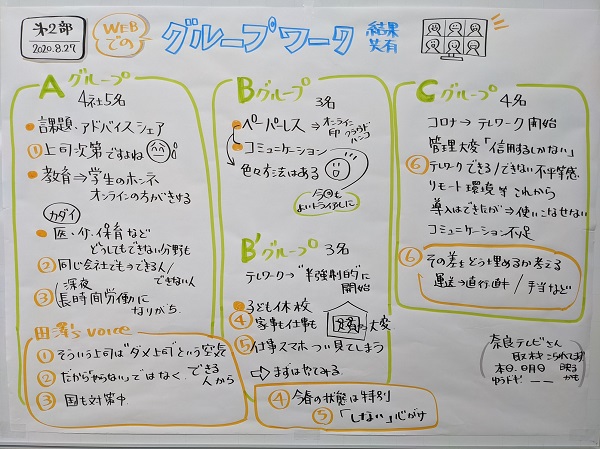 第2部
2020.8.27
WEB
での
グループワーク
結果
共有
Aグループ
4社5名
課題、アドバイスシェア
①上司次第ですよね
教育⇒学生のホンネ
オンラインの方がきける
カダイ
医、介、保育など
どうしてもできない分野も
②同じ会社でもできる人/
できない人
③深夜
長時間労働に
なりがち
田澤's voice
①そういう上司は"ダメ上司"という空気
②だから「やらない」ではなく できる
人から
③国も対策中
Bグループ
3名
ペーパーレス⇒オンライン
印 クラウド
ハンコ
コミュニケーション
色々方法はある
今回も
よいトライアルに
B'グループ 3名
テレワーク→"半強制的"に
開始
子ども休校
④家事も仕事も
大変
⑤仕事スマホつい見てしまう
⇨まずはやってみる
④今春の状態は特別
⑤「しない」心がけ
Cグループ 4名
コロナ→テレワーク開始
管理大変「信用するしかない」
⑥テレワークできる/できない不平等感
リモート環境等 これから
導入はできたが⇒使いこなせない
コミュニケーション不足
⑥その差をどう埋めるか考える
運送→直行直帰/手当など
奈良テレビさん
取材こられてます
本日
ゆうドキ
かも